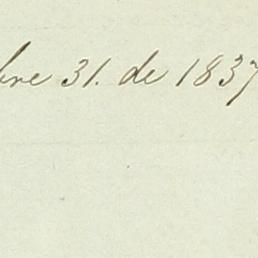 bre 31. de 1837